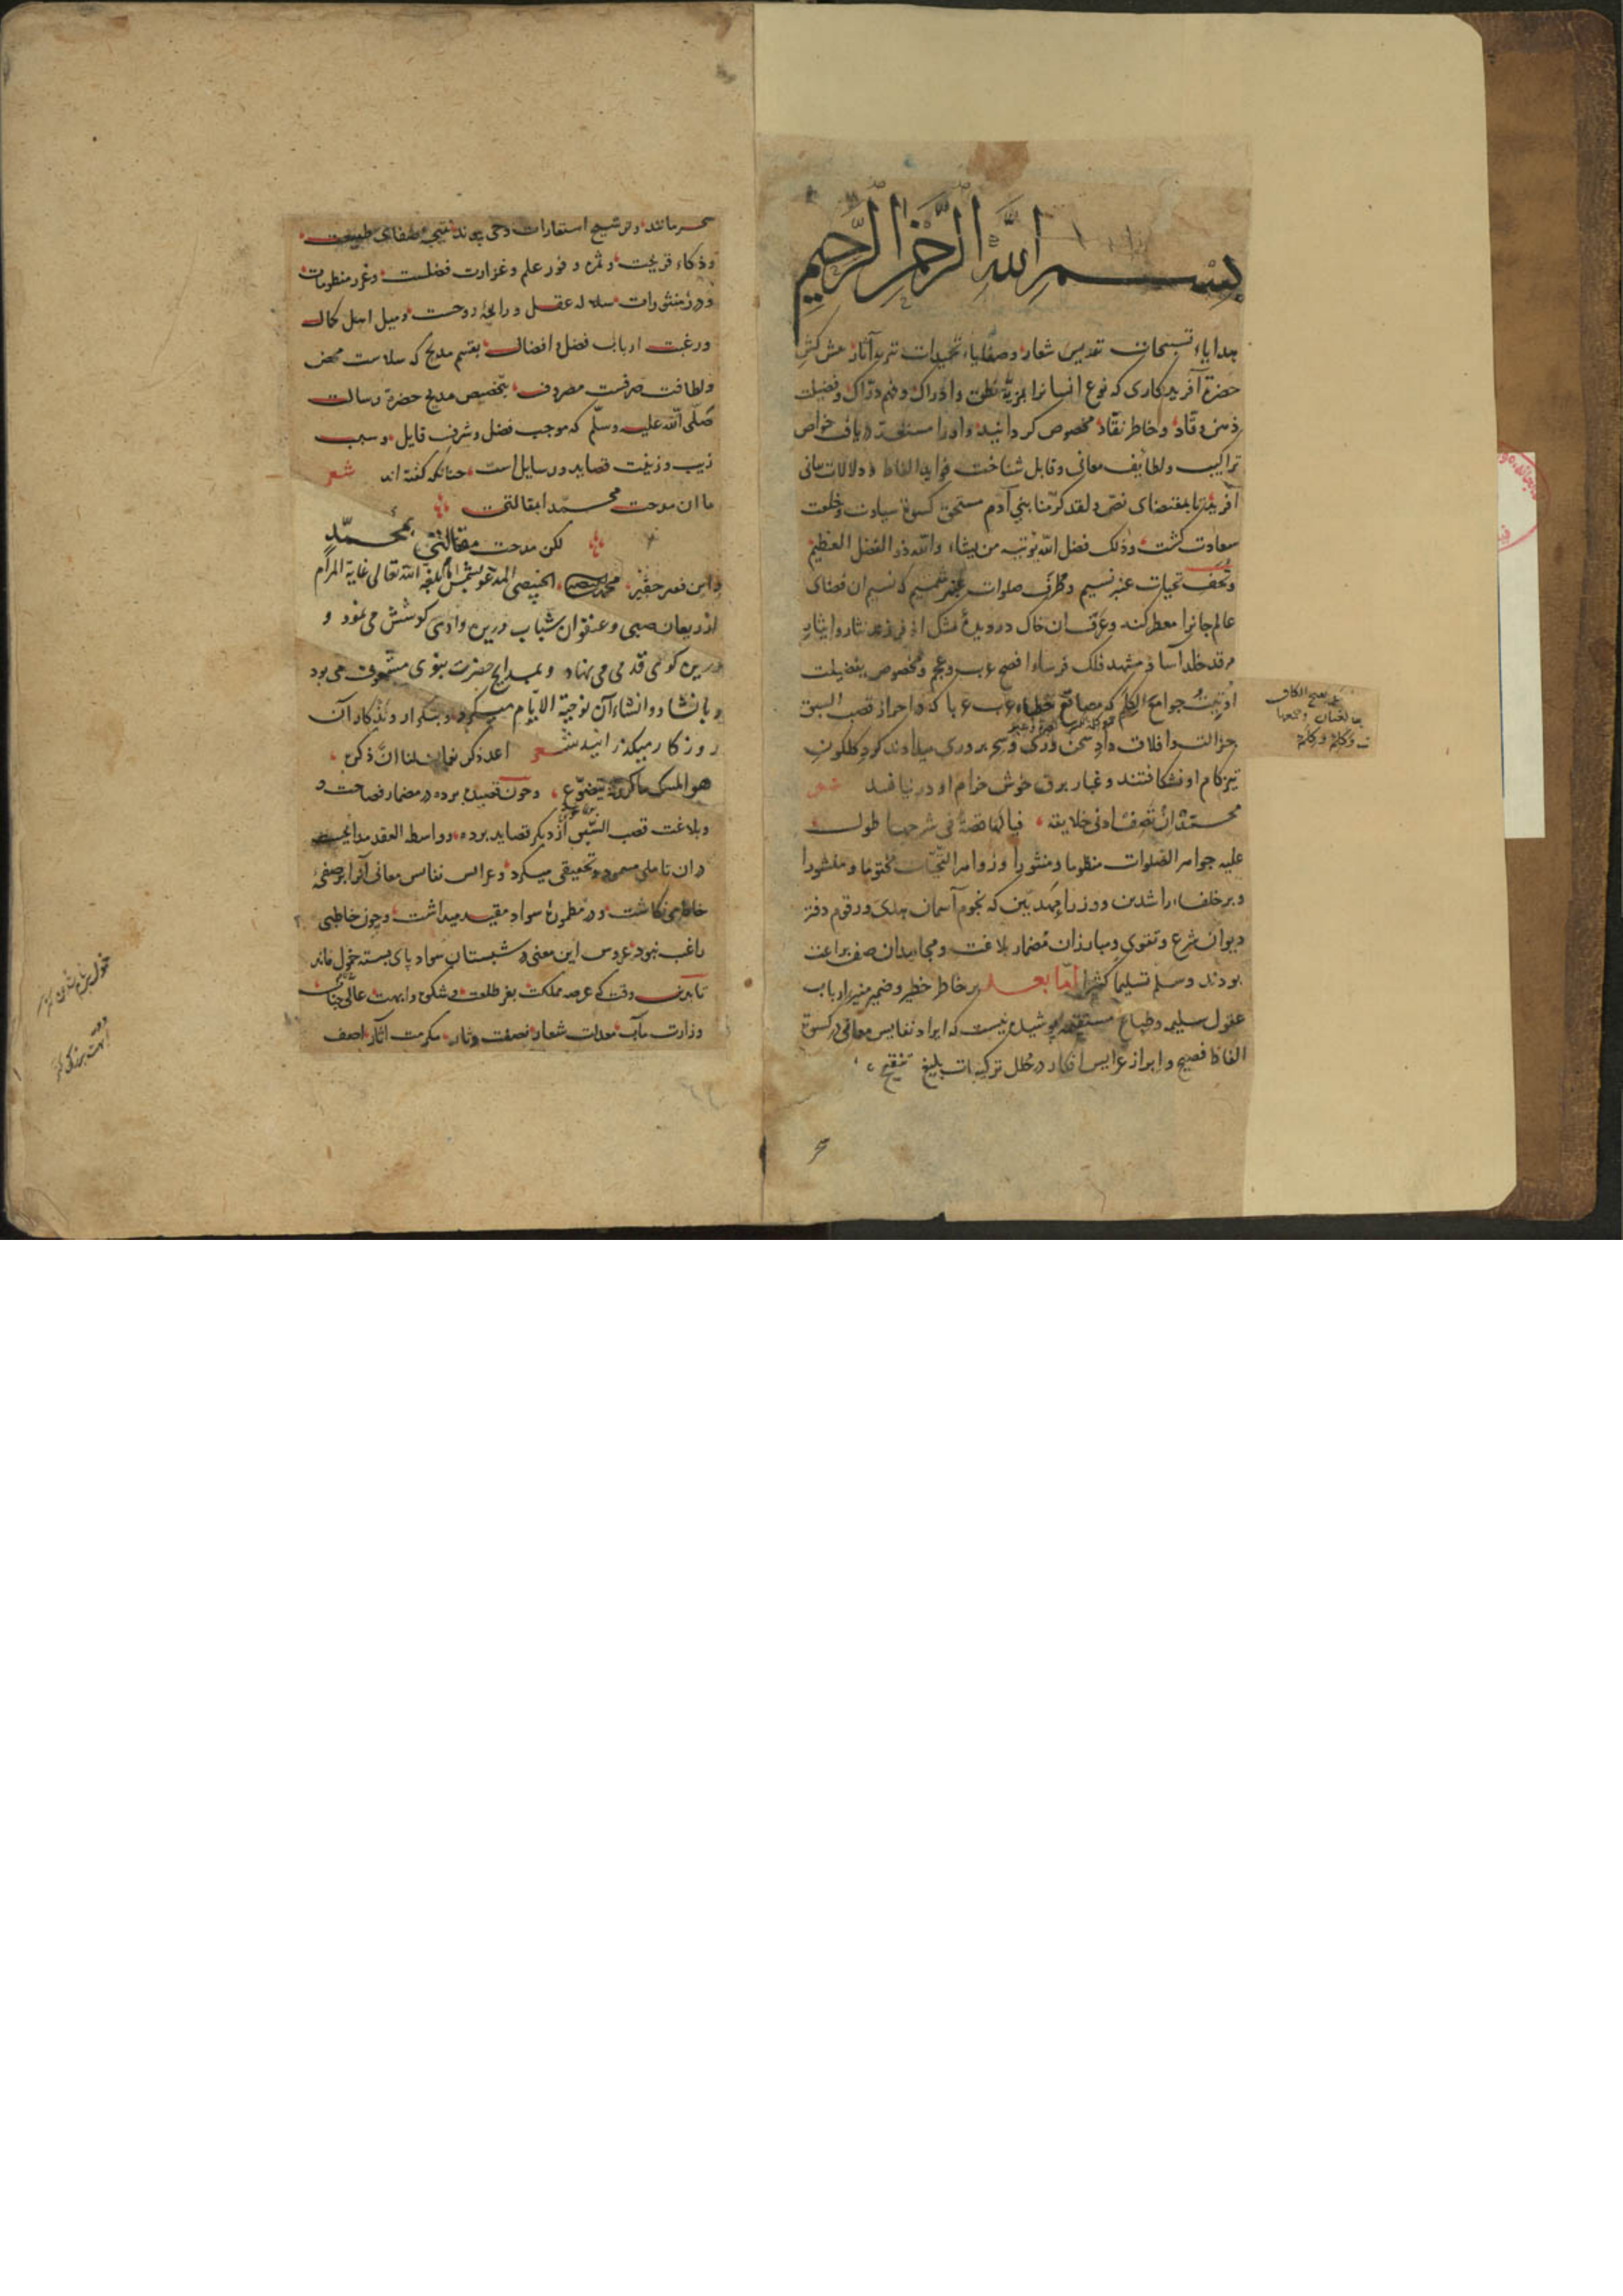 بسم الله الرحمن الرحیم
هدایاء تسبیحات تقدیس شعار و صفایاء تحمیدات تنزیه آثار پیش کش
حضرة آفریدکاری که نوع انسانرا بمزیّة نطق و ادراک و فهم درّاک و فضیلت
ذهن وقّاد و خاطر نقّاد مخصوص کردانید و او را مستعدّ دریافت خواص
تراکیب و لطایف معانی و قابل شناخت فواید الفاظ و دلالات مبانی
آفرید تا بمقتضای نصّ و لقد کرّمنا بنی آدم مستحق کسوة سیادت و خلعت
سعادت کشت و ذلک فضل الله یوتیه من یشاء والله ذو الفضل العظیم
و تحف تحیات عنبر نسیم و طرف صلوات عنبر شمیم که نسیم آن فضای
عالم جانرا معطر کند و عرق آن خاک در دیدهٔ مشک اذفر زند نثار و ایثار
مرقد خلد آسا و مشهد فلک فرساء افصح عرب و عجم و مخصوص بفضیلت
اوتیت جوامع الکلم که مصاقع خطباء عرب عربا که در احراز قصب السبق
جزالت و افلاق داد سخن وری و سحر پروری میدادند کرد کلکون
تیزکام او نشکافتند و غبار برق خوش خرام او در نیافتند شعر
محمّد ان تصف ادنی خلایقه فیا لها قصة فی شرحها طول
علیه جواهر الصّلوات منظوما و منثورا و زواهر التّحیّات مختوما و منشورا
و بر خلفاء راشدین و وزراء مهدیین که نجوم آسمان هدی و رقوم دفتر
دیوان شرع و تقوی و مبارزان مضمار بلاغت و مجاهدان صف براعت
بودند و سلم تسلیما کثیرا امّا بعد بر خاطر خطیر و ضمیر منیر ارباب
عقول سلیم و طباع مستقیم پوشیده نیست که ایراد نفایس معانی در کسوة
الفاظ فصیح و ابراز عرایس افکار در حلل ترکیبات بلیغ تنقیح
سحر مانند و ترشیح استعارات وحی پیوند نتیجهٔ صفای طبیعت
و ذکاء قریحت و ثمره وفور علم و غزارت فضلست و غرر منظومات
و درر منثورات سلاله عقل و رایحهٔ روحست و میل اهل کمال
و رغبت ارباب فضل و افضال بقسم مدیح که سلاست محض
و لطافت صرفست مصروف بتخصیص مدیح حضرة رسالت
صلّی الله علیه وسلّم که موجب فضل و شرف قایل و سبب
زیب و زینت قصاید و رسایل است چنانکه کفته اند شعر
ما ان مدحت محمّدا بمقالتی
لکن مدحت مقالتی بمحمّد
و این فقیر حقیر محمد الخبیصی المدعو بشمس بلّغه الله تعالی غایة المرام
از ریعان صبی و عنفوان شباب درین وادی کوشش می نمود و
درین کوی قدمی می نهاد و بمدایح حضرت نبوی مشعوف می بود
و بانشاد و انشاء آن توجیة الایّام میکرد و بتکرار و تذکار آن
روزکار میکذرانید شعر اعد ذکر نعمان لنا انّ ذکره
هو المسک ما کرّرته یتضوّع و چون قصیدهٔ برده در مضمار فصاحت و
و بلاغت قصب السّبق از دیکر قصاید برده و واسطه العقد مدایح
در ان تاملی میمود و تحقیقی میکرد و عرایس نفایس معانی آنرا بر صفحهٔ
خاطر می نکاشت و در مطمورهٔ سواد مقید میداشت و چون خاطبی
راغب نبود عروس این معنی در شبستان سواد پای بسته خمول ماند
تا بدین وقت که عرصه مملکت بفر طلعت و شکوه و ابهت عالی جناب
وزارت مآب معدلت شعار نصفت دثار مکرمت آثار آصف